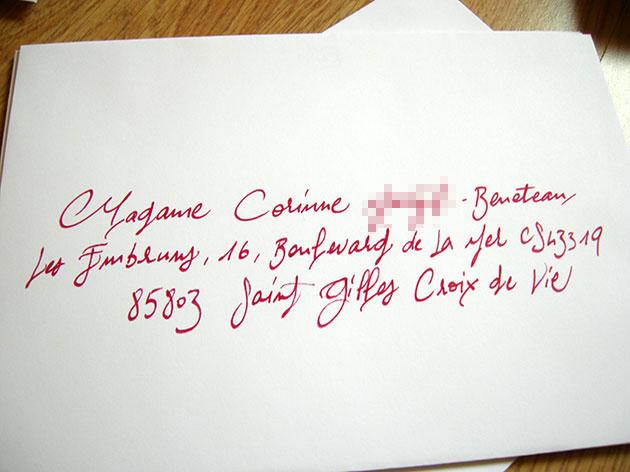 Madame Corinne - Beneteau
Les Embruns, 16, Boulevard de La Mer CS43319
85803 Saint Gilles Croix de Vie